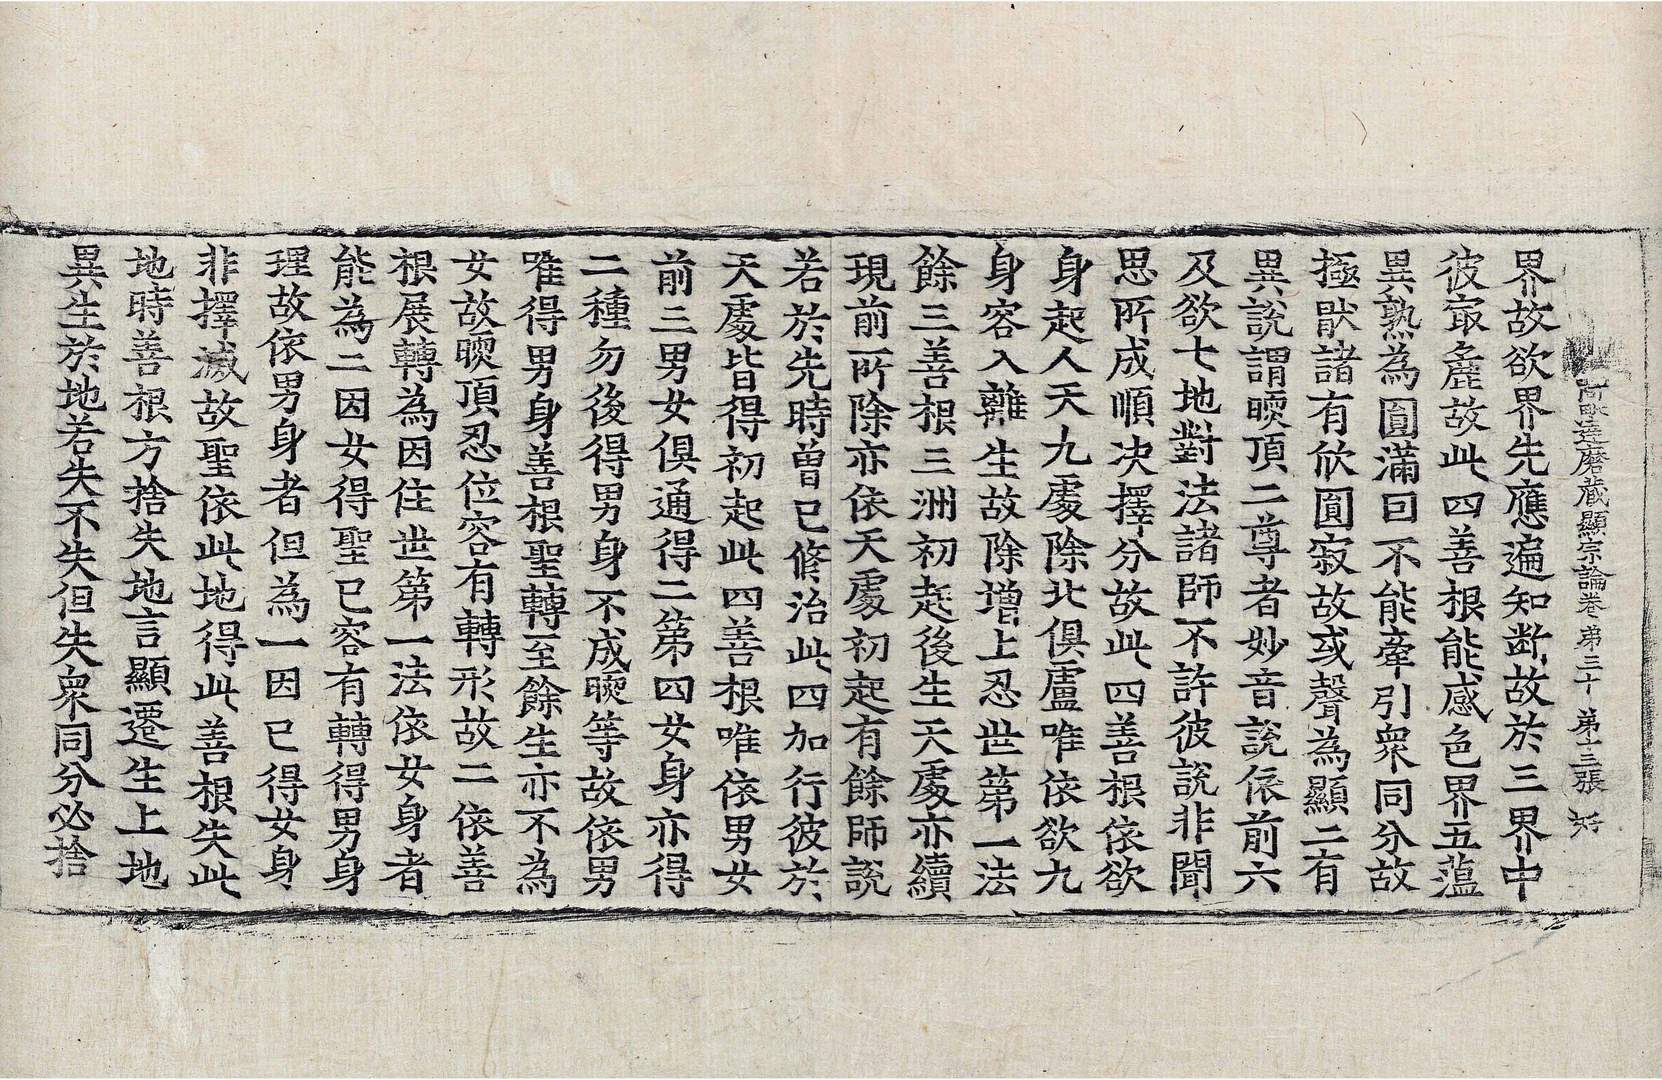 阿毗達磨藏顯宗論卷第三十 第十三張 好
界故欲界先應遍知断故於三界中
彼㝡麁故此四善根能感色界五蕰
異熟為圓滿因不能牽引衆同分故
極猒諸有欣圓寂故或聲為顯二有
異說謂暝頂二尊者妙音說依前六
及欲七地對法諸師不許彼說非聞
思所成順决擇分故此四善根依欲
身起人天九處除北俱盧唯依欲九
身容入離生故除增上忍世第一法
餘三善根三洲初起後生天處亦續
現前所除亦依天處初起有餘師說
若於先時曾已修治此四加行彼於
天處皆得初起此四善根唯依男女
前三男女俱通得二第四女身亦得
二種勿後得男身不成暝等故依男
唯得男身善根聖轉至餘生亦不為
女故暝頂忍位容有轉形故二依善
根展轉為因住世第一法依女身者
能為二因女得聖已容有轉得男身
理故依男身者但為一因已得女身
非擇滅故聖依此地得此善根失此
地時善根方捨失地言顯遷生上地
異生於地若失不失但失衆同分必捨